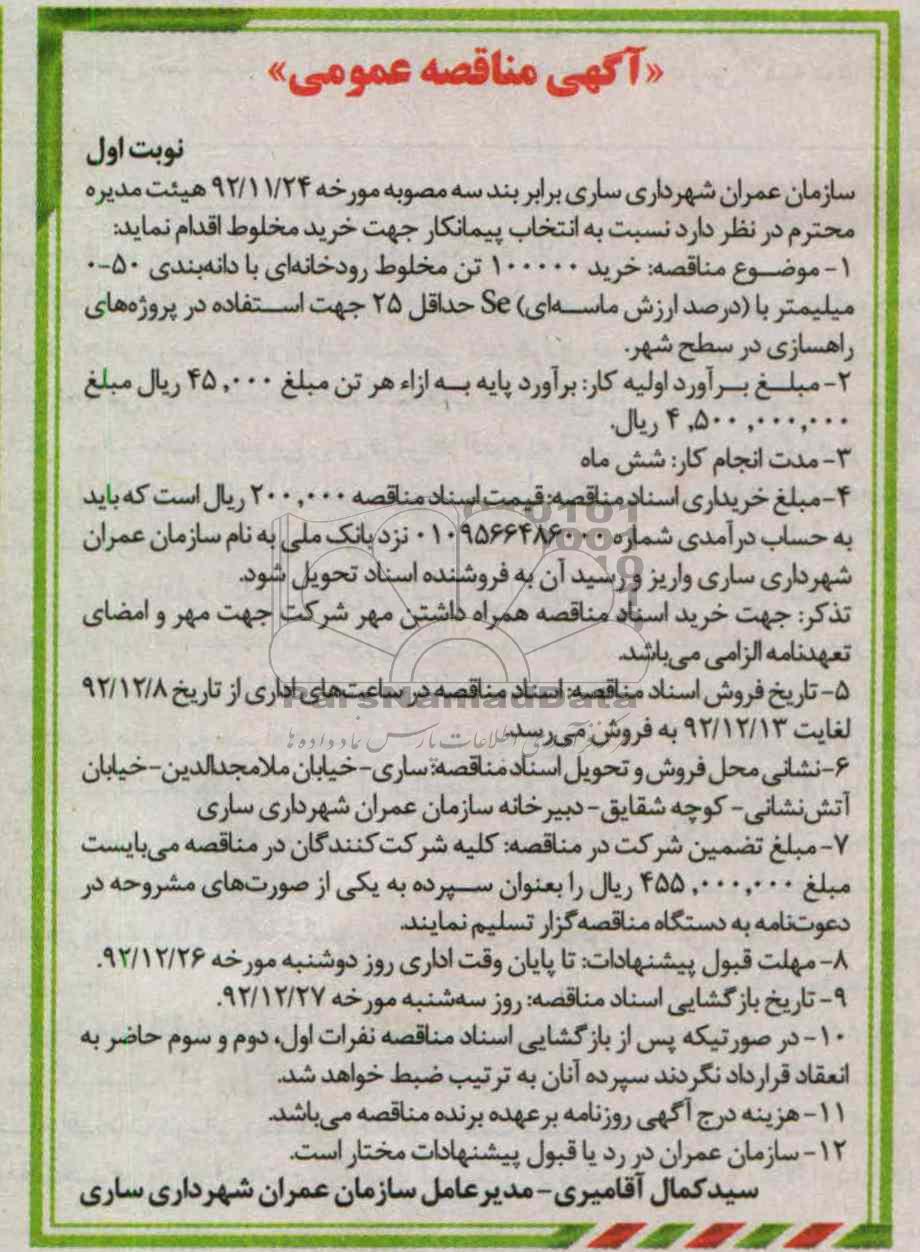 «آگهی مناقصه عمومی»
نوبت اول
سازمان عمران شهرداری ساری برابر بند سه مصوبه مورخه ۹۲/۱۱/۲۴ هیئت مدیره
محترم در نظر دارد نسبت به انتخاب پیمانکار جهت خرید مخلوط اقدام نماید:
۱- موضوع مناقصه: خرید ۱۰۰۰۰۰ تن مخلوط رودخانه‌ای با دانه‌بندی ۵۰-۰
میلیمتر با (درصد ارزش ماسه‌ای) Se حداقل ۲۵ جهت استفاده در پروژه‌های
راهسازی در سطح شهر.
۲- مبلغ برآورد اولیه کار: برآورد پایه به ازاء هر تن مبلغ ۴۵,۰۰۰ ریال مبلغ
۴,۵۰۰,۰۰۰,۰۰۰ ریال.
۳- مدت انجام کار: شش ماه
۴- مبلغ خریداری اسناد مناقصه: قیمت اسناد مناقصه ۲۰۰,۰۰۰ ریال است که باید
به حساب درآمدی شماره ۰۱۰۹۵۶۶۴۸۶۰۰۰ نزد بانک ملی به نام سازمان عمران
شهرداری ساری واریز و رسید آن به فروشنده اسناد تحویل شود.
تذکر: جهت خرید اسناد مناقصه همراه داشتن مهر شرکت جهت مهر و امضای
تعهدنامه الزامی می‌باشد.
۵- تاریخ فروش اسناد مناقصه: اسناد مناقصه در ساعت‌های اداری از تاریخ ۹۲/۱۲/۸
ParsNamadData
لغایت ۹۲/۱۲/۱۳ به فروش می‌رسد.
۶- نشانی محل فروش و تحویل اسناد مناقصه: ساری- خیابان ملامجدالدین- خیابان
آتش‌نشانی- کوچه شقایق- دبیرخانه سازمان عمران شهرداری ساری
۷- مبلغ تضمین شرکت در مناقصه: کلیه شرکت‌کنندگان در مناقصه می‌بایست
مبلغ ۴۵۵,۰۰۰,۰۰۰ ریال را بعنوان سپرده به یکی از صورت‌های مشروحه در
دعوتنامه به دستگاه مناقصه‌گزار تسلیم نمایند.
۸- مهلت قبول پیشنهادات: تا پایان وقت اداری روز دوشنبه مورخه ۹۲/۱۲/۲۶.
۹- تاریخ بازگشایی اسناد مناقصه: روز سه‌شنبه مورخه ۹۲/۱۲/۲۷.
۱۰- در صورتیکه پس از بازگشایی اسناد مناقصه نفرات اول، دوم و سوم حاضر به
انعقاد قرارداد نگردند سپرده آنان به ترتیب ضبط خواهد شد.
۱۱- هزینه درج آگهی روزنامه برعهده برنده مناقصه می‌باشد.
۱۲- سازمان عمران در رد یا قبول پیشنهادات مختار است.
سیدکمال آقامیری- مدیرعامل سازمان عمران شهرداری ساری